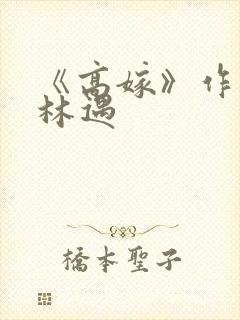 《高嫁》作
林遇
橋本聖子